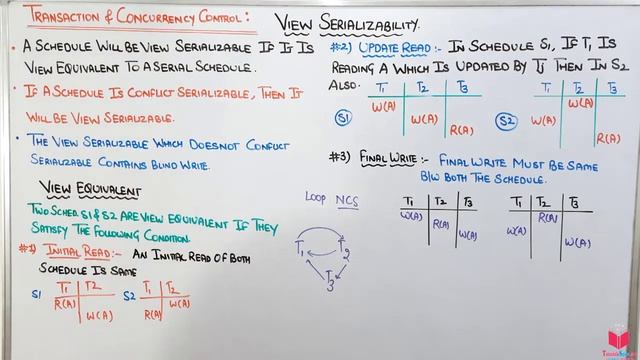 TRANSACTION & CONCURRENCY CONTROL:
VIEW SERIALIZABILITY.
• A SCHEDULE WILL BE VIEW SERIALIZABLE IF IT IS
VIEW EQUIVALENT TO A SERIAL SCHEDULE.
• IF A SCHEDULE IS CONFLICT SERIALIZABLE, THEN IT
WILL BE VIEW SERIALIZABLE.
• THE VIEW SERIALIZABLE WHICH DOESNOT CONFLICT
SERIALIZABLE CONTAINS BLIND WRITE.
VIEW EQUIVALENT
TWO SCHED. S1 & S2 ARE VIEW EQUIVALENT IF THEY
SATISFY THE FOLLOWING CONDITION.
#1) INITIAL READ:- AN INITIAL READ OF BOTH
SCHEDULE IS SAME
S1 T1 T2
R(A)
W(A)
S2 T1 T2
W(A)
R(A)
LOOP NCS
T1 T2
T3
#2) UPDATE READ:- IN SCHEDULE S1, IF T1 IS
READING A WHICH IS UPDATED BY TJ THEN IN S2
ALSO.
S1 T1 T2 T3
W(A)
W(A)
R(A)
S2 T1 T2 T3
W(A)
W(A)
R(A)
#3) FINAL WRITE:- FINAL WRITE MUST BE SAME
B/W BOTH THE SCHEDULE.
T1 T2 T3
W(A)
R(A)
W(A)
T1 T2 T3
R(A)
W(A)
W(A)